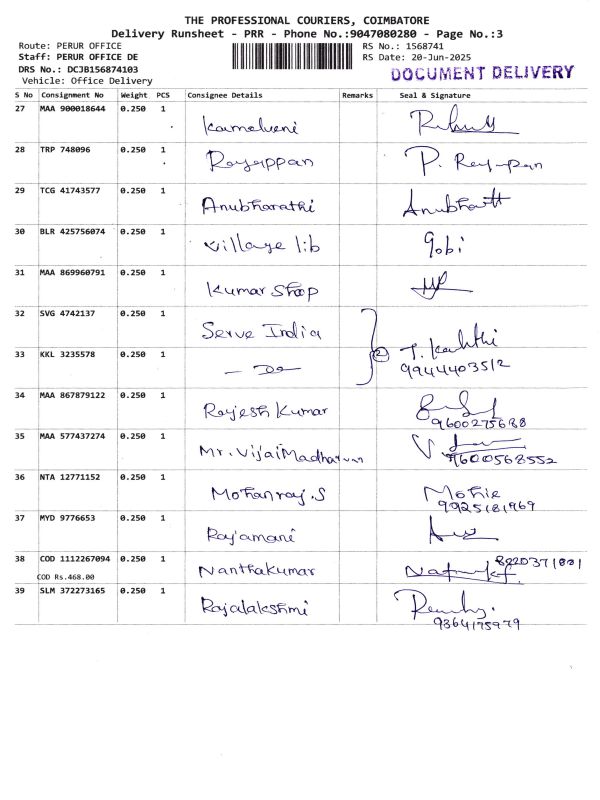 THE PROFESSIONAL COURIERS, COIMBATORE
Delivery Runsheet - PRR - Phone No.:9047080280 - Page No.:3
Route: PERUR OFFICE RS No.: 1568741
Staff: PERUR OFFICE DE RS Date: 20-Jun-2025
DRS No.: DCJB156874103 DOCUMENT DELIVERY
Vehicle: Office Delivery
S No Consignment No Weight PCS Consignee Details Remarks Seal & Signature
27 MAA 900018644 0.250 1
Kamalveni
28 TRP 748096 0.250 1
Rayappan P. Rayappan
29 TCG 41743577 0.250 1
Anubharathi
30 BLR 425756074 0.250 1
village lib gobi
31 MAA 869960791 0.250 1
Kumar Shop
32 SVG 4742137 0.250 1
Serve India
33 KKL 3235578 0.250 1 2 T.
— Do — 9944403512
34 MAA 867879122 0.250 1
Rajesh Kumar
9600275688
35 MAA 577437274 0.250 1
Mr. Vijai Madhavan 9600568552
36 NTA 12771152 0.250 1
Mohanraj.S
9925181969
37 MYD 9776653 0.250 1
Rajamani
38 COD 1112267094 0.250 1
COD Rs.468.00 Nanthakumar
39 SLM 372273165 0.250 1
Rajalakshmi
9364175979